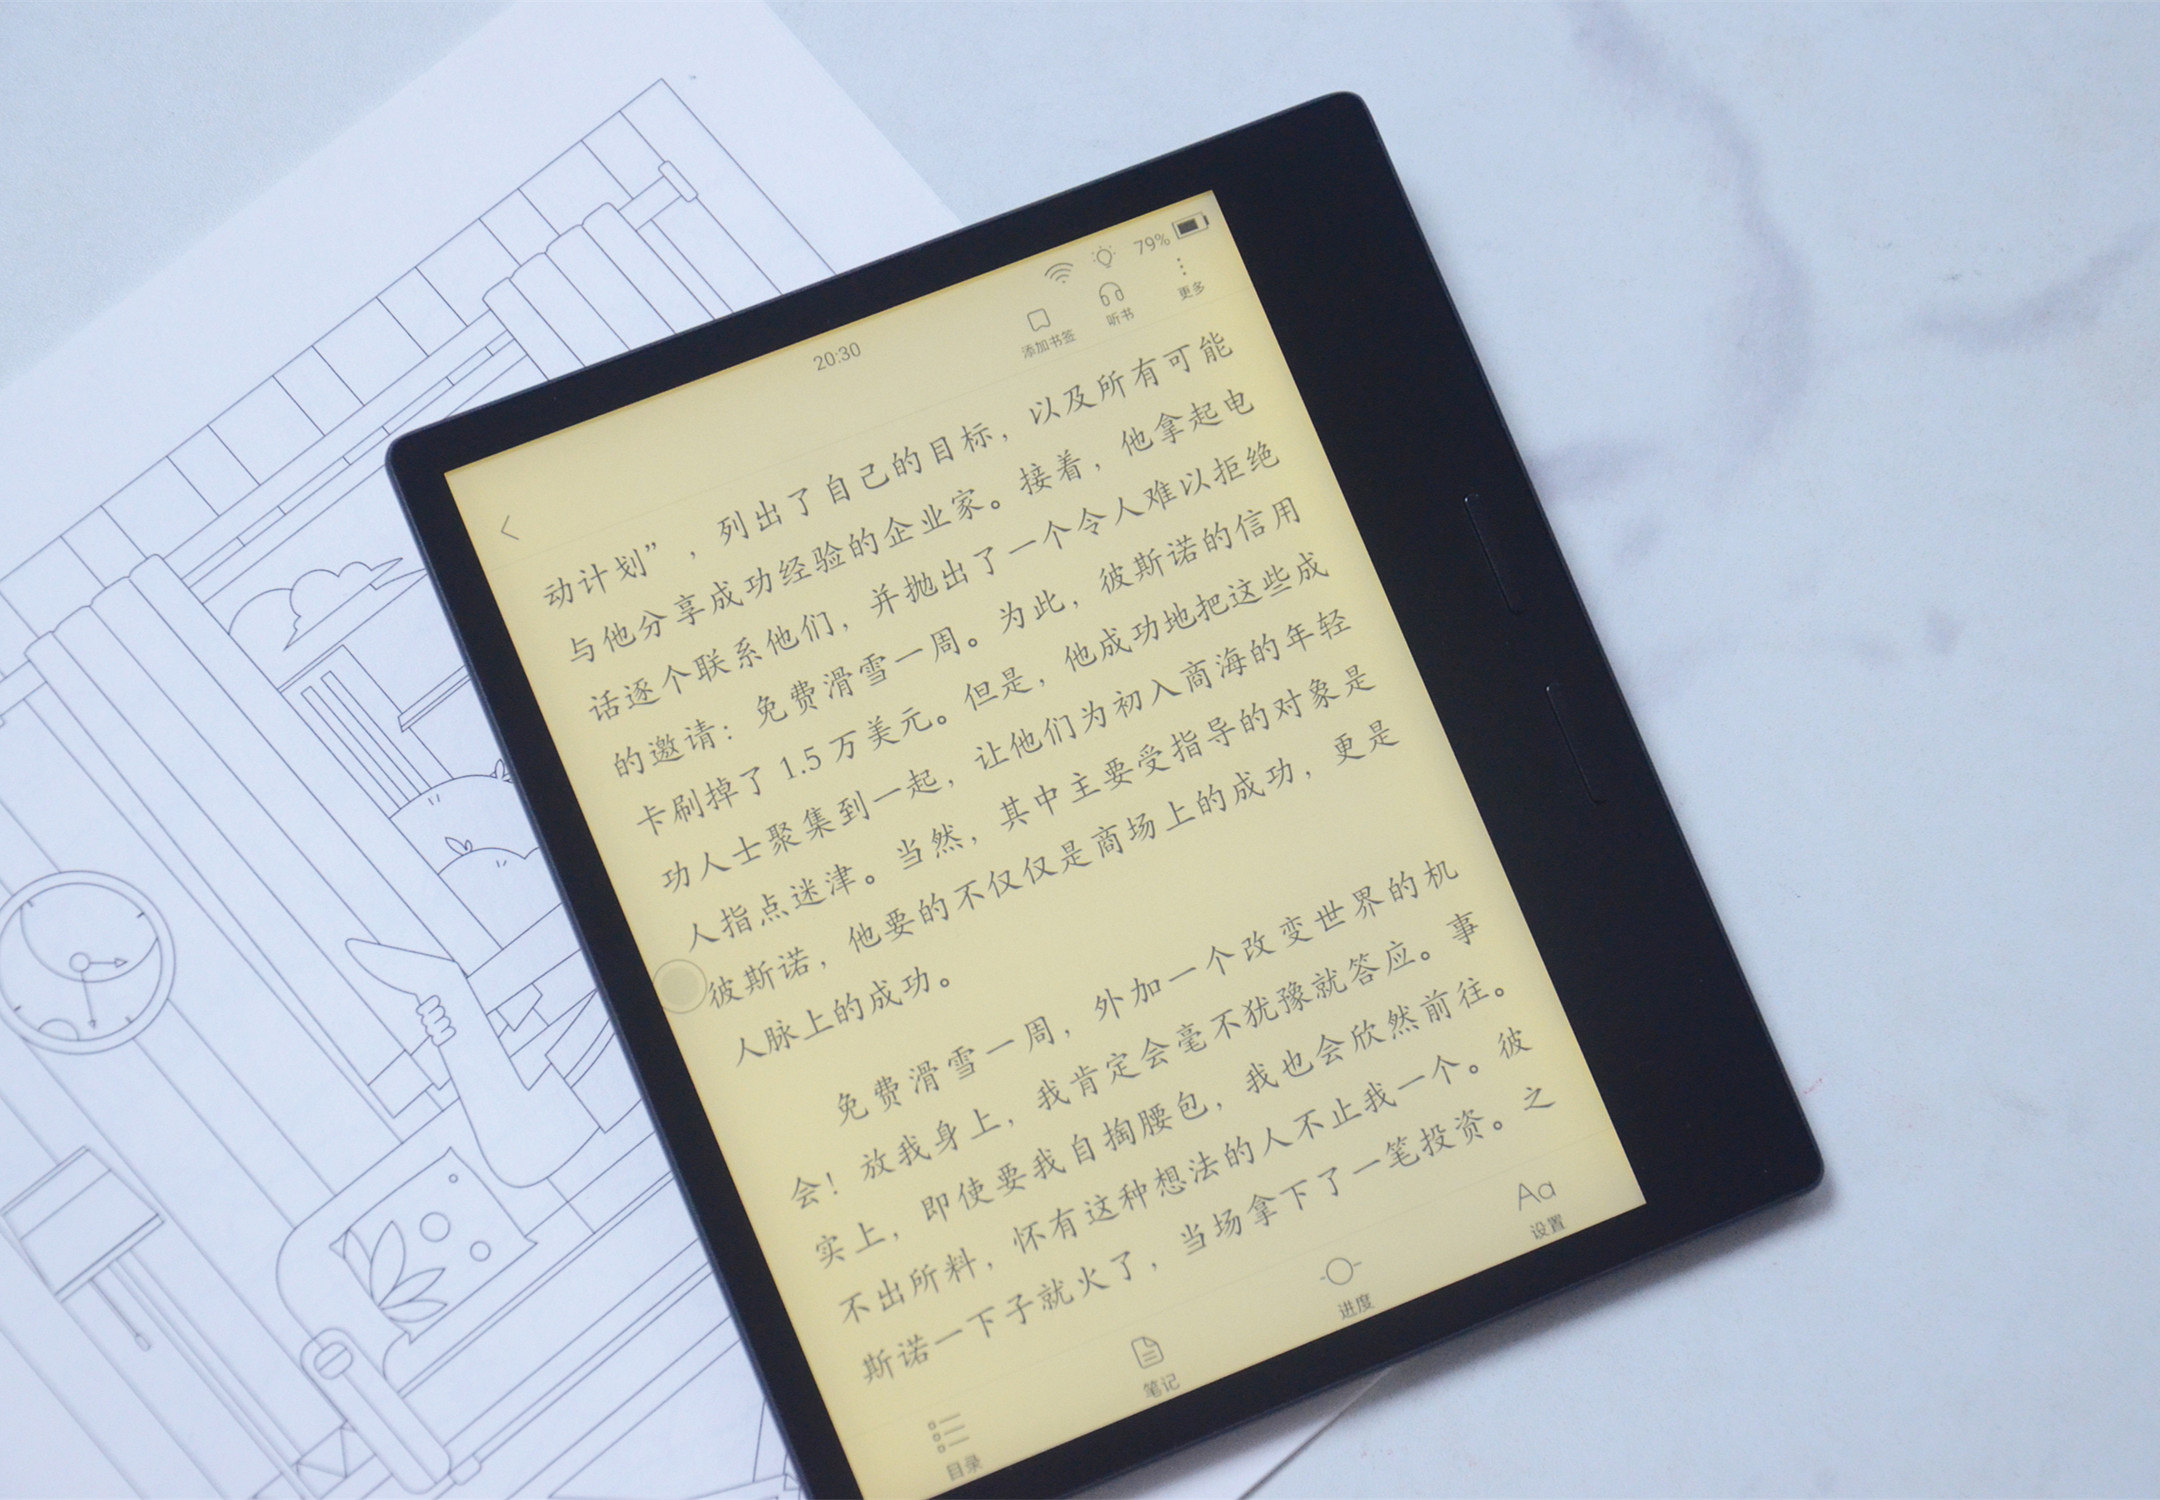 79%
20:30
添加书签
听书
更多
动计划”，列出了自己的目标，以及所有可能
与他分享成功经验的企业家。接着，他拿起电
话逐个联系他们，并抛出了一个令人难以拒绝
的邀请：免费滑雪一周。为此，彼斯诺的信用
卡刷掉了 1.5 万美元。但是，他成功地把这些成
功人士聚集到一起，让他们为初入商海的年轻
人指点迷津。当然，其中主要受指导的对象是
彼斯诺，他要的不仅仅是商场上的成功，更是
人脉上的成功。
免费滑雪一周，外加一个改变世界的机
会！放我身上，我肯定会毫不犹豫就答应。事
实上，即使要我自掏腰包，我也会欣然前往。
不出所料，怀有这种想法的人不止我一个。彼
斯诺一下子就火了，当场拿下了一笔投资。之
目录
笔记
进度
Aa
设置